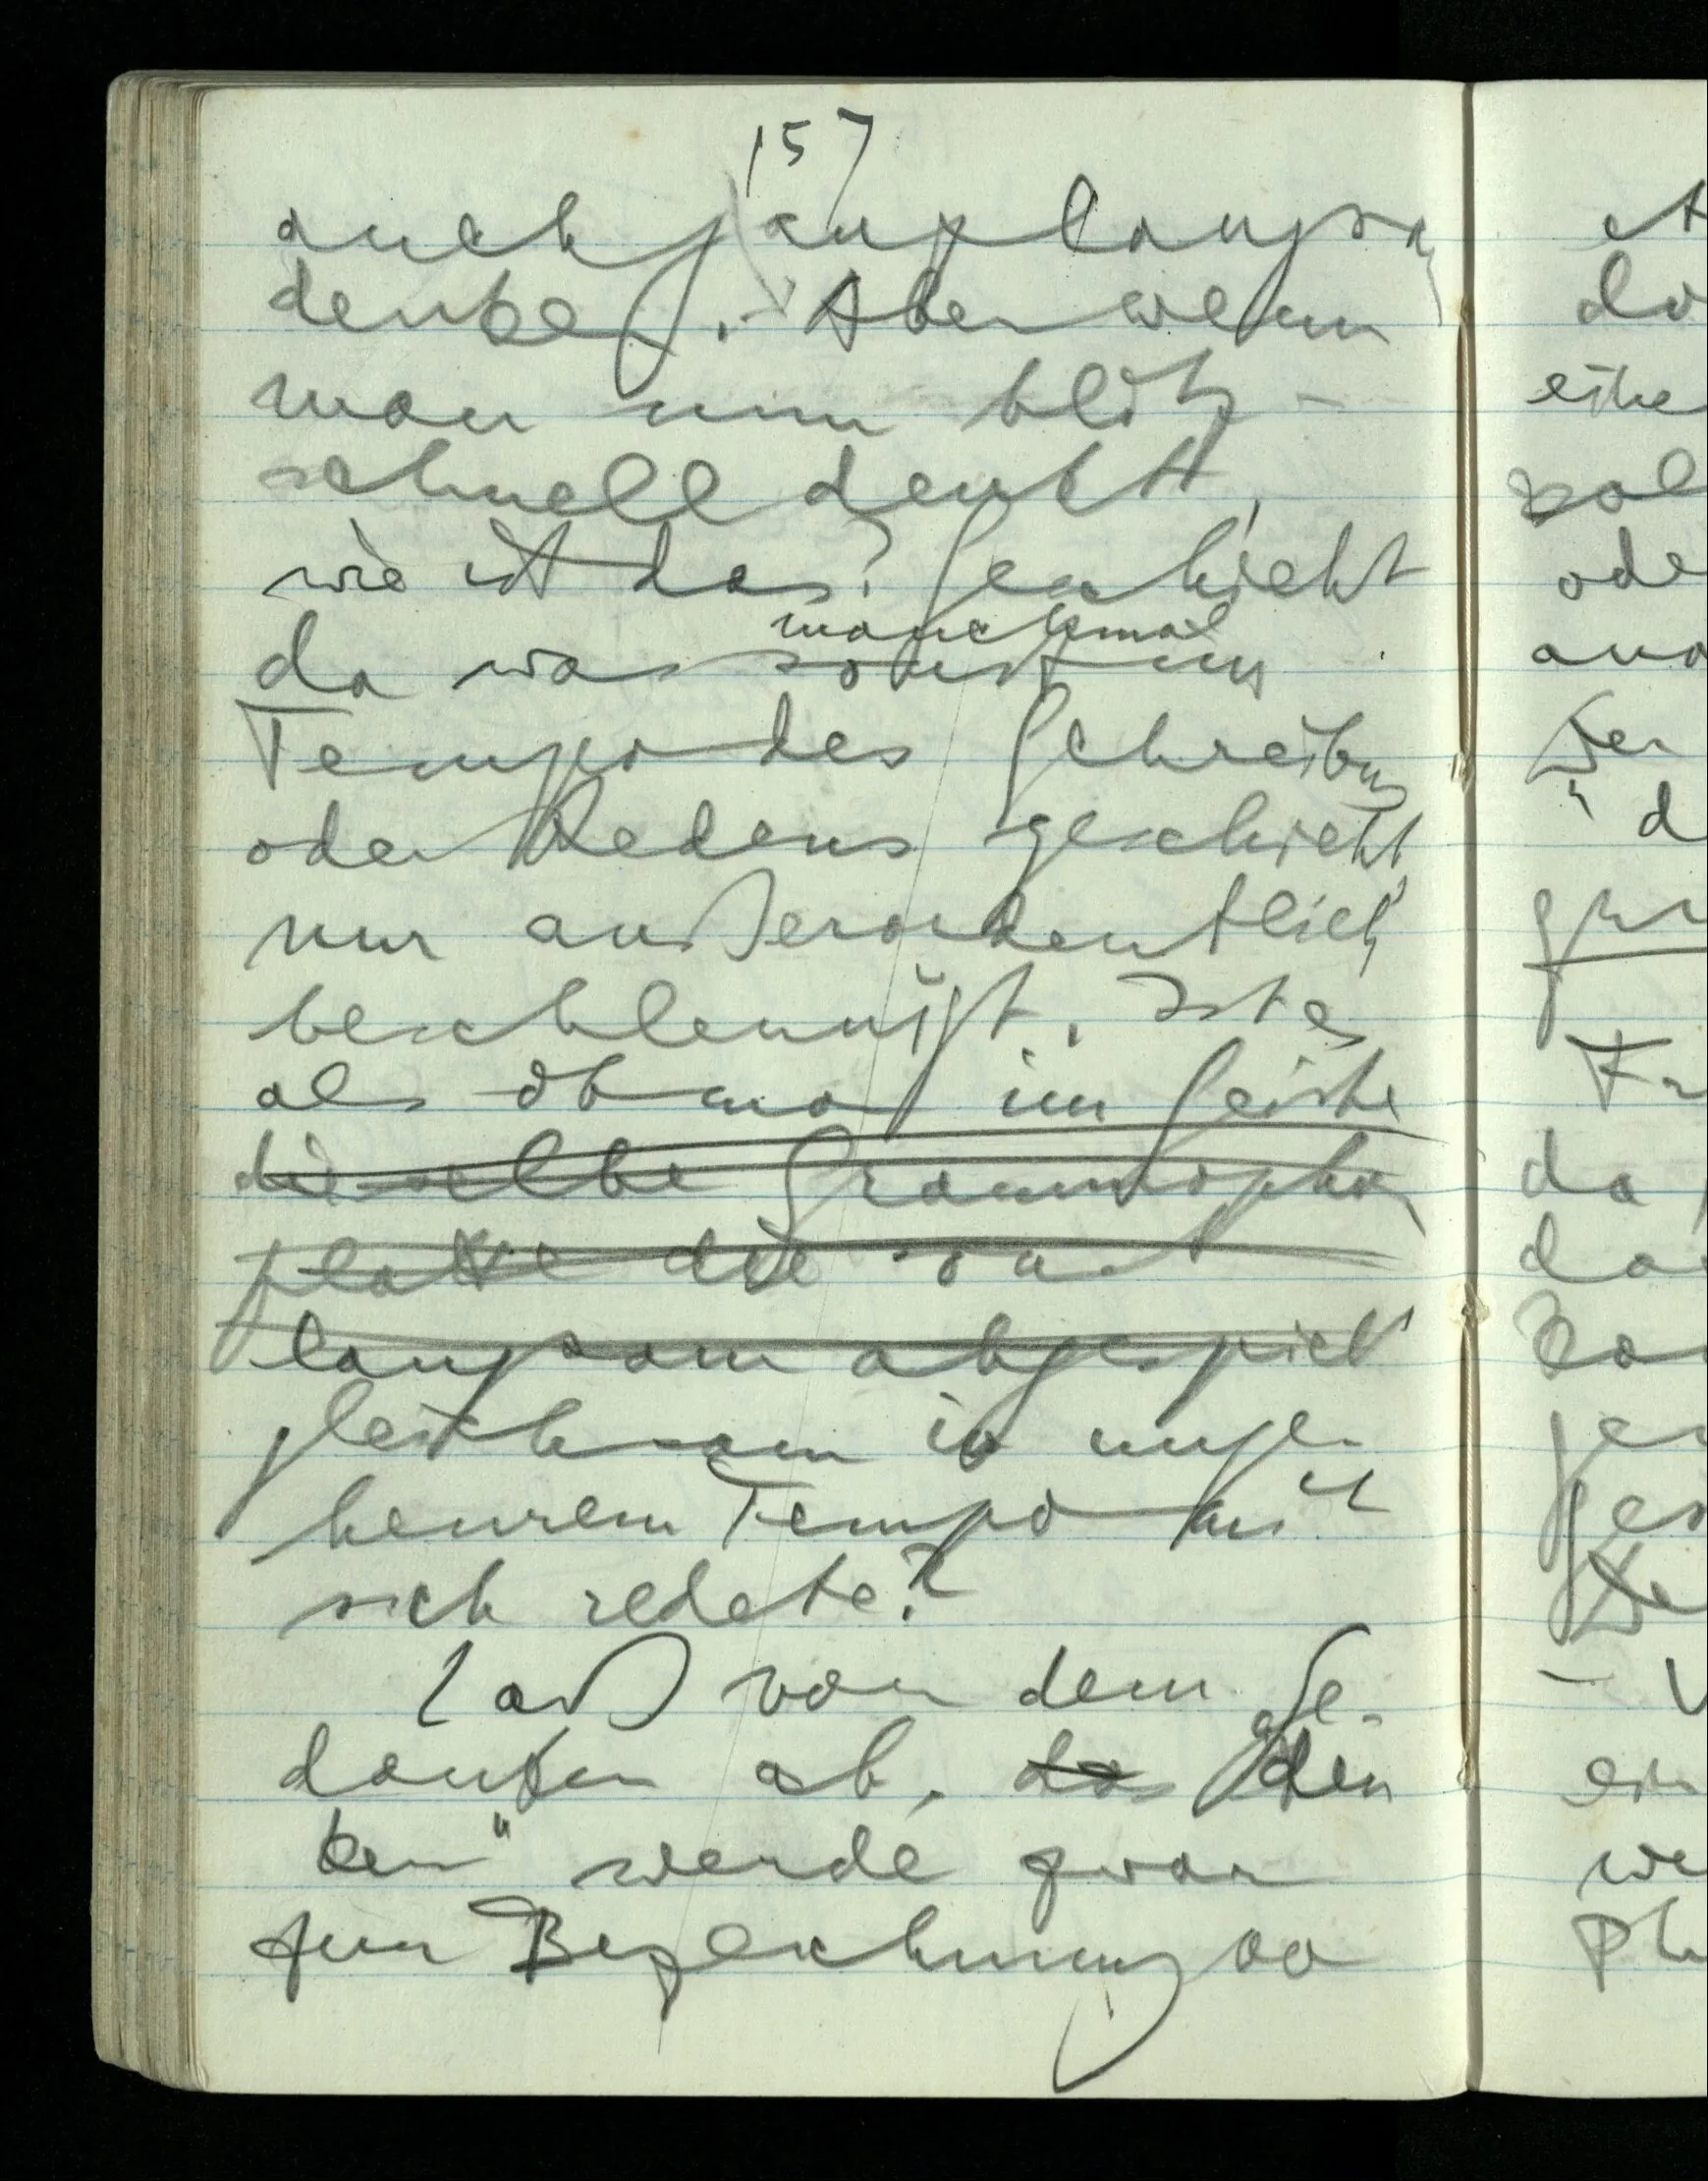 157
auch ganz langsam
denken. – Aber wenn
man nun blitz-
schnell denkt,
wie ist das? Geschieht
manchmal
da was sonst im
Tempo des Schreibens
oder Redens geschieht,
nur außerordentlich
beschleunigt. Ist es
als ob man im Geiste
dieselbe Grammophon
platte die sonst
langsam abgespielt
gleichsam in unge-
heurem Tempo mit
sich redete?
Laß von dem Ge-
danken ab, das „den
ken" werde zwar
zur Bezeichnung